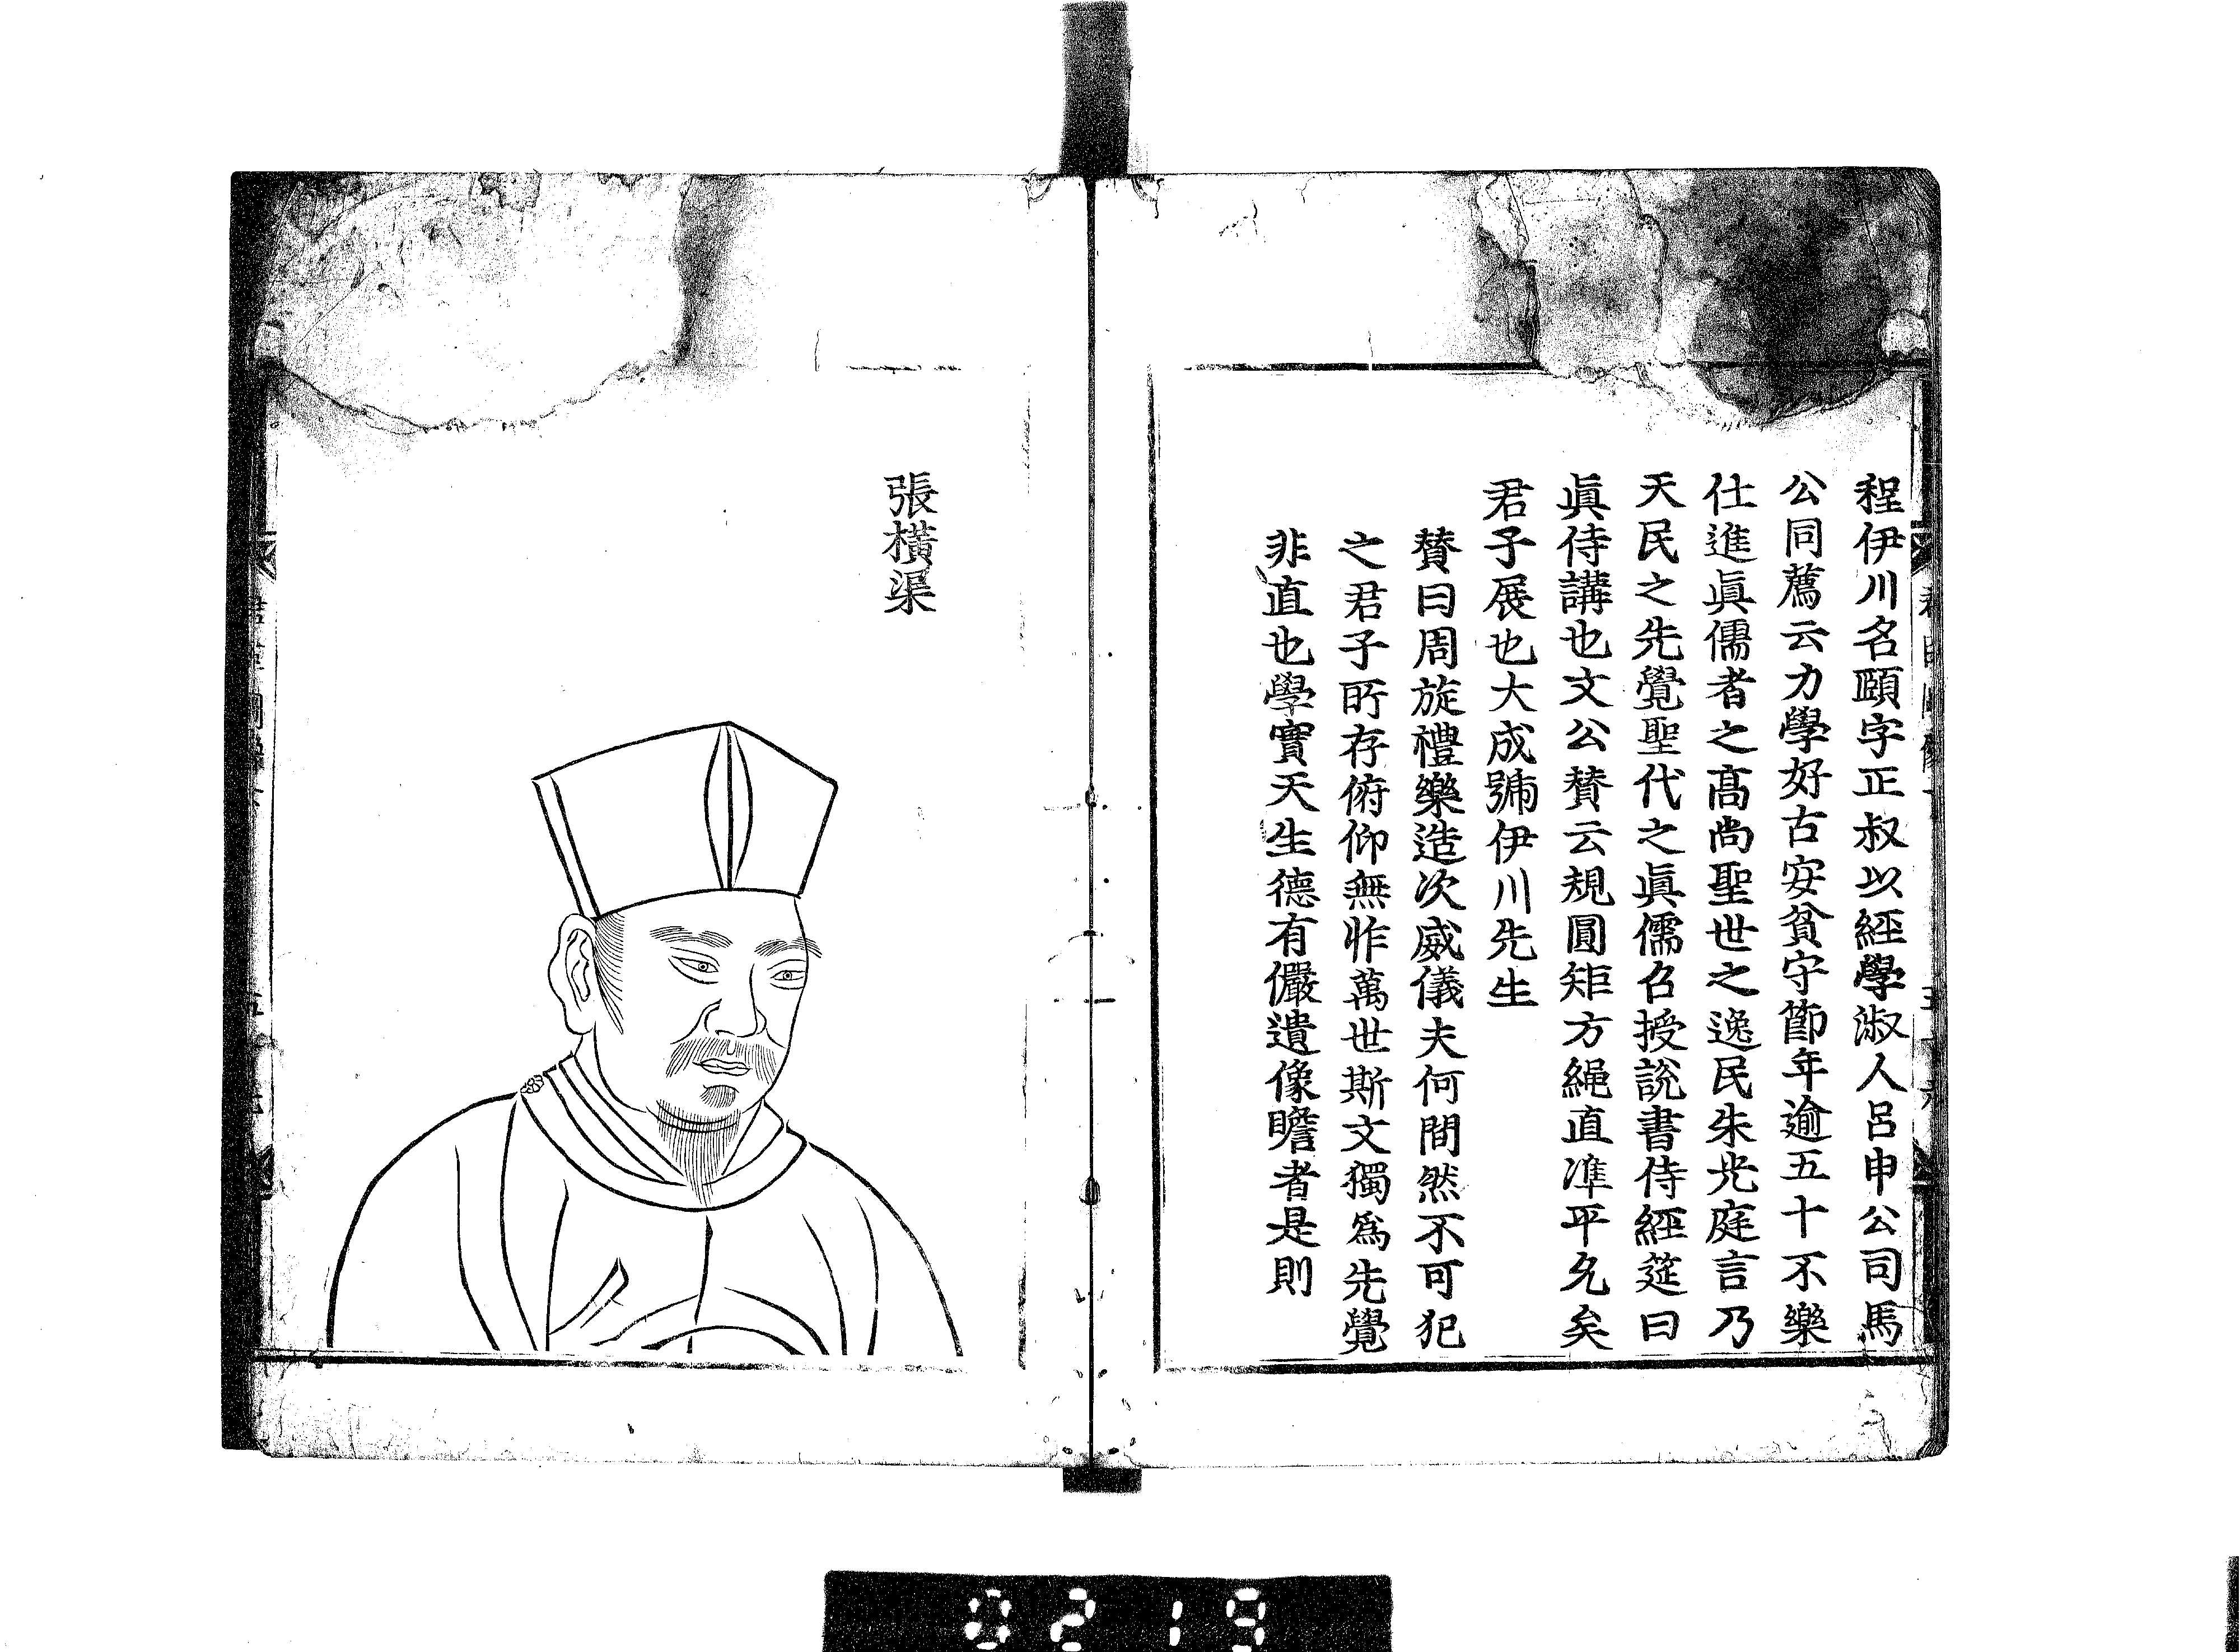 程伊川名頤字正叔以經學淑人呂申公司馬
公同薦云力學好古安貧守節年逾五十不樂
仕進眞儒者之高尚聖世之逸民朱光庭言乃
天民之先覺聖代之眞儒召授說書侍經筵曰
眞侍講也文公賛云規圓矩方繩直準平允矣
君子展也大成號伊川先生
賛曰周旋禮樂造次威儀夫何間然不可犯
之君子所存俯仰無怍萬世斯文獨爲先覺
非直也學實天生德有儼遺像瞻者是則
張橫渠
0219